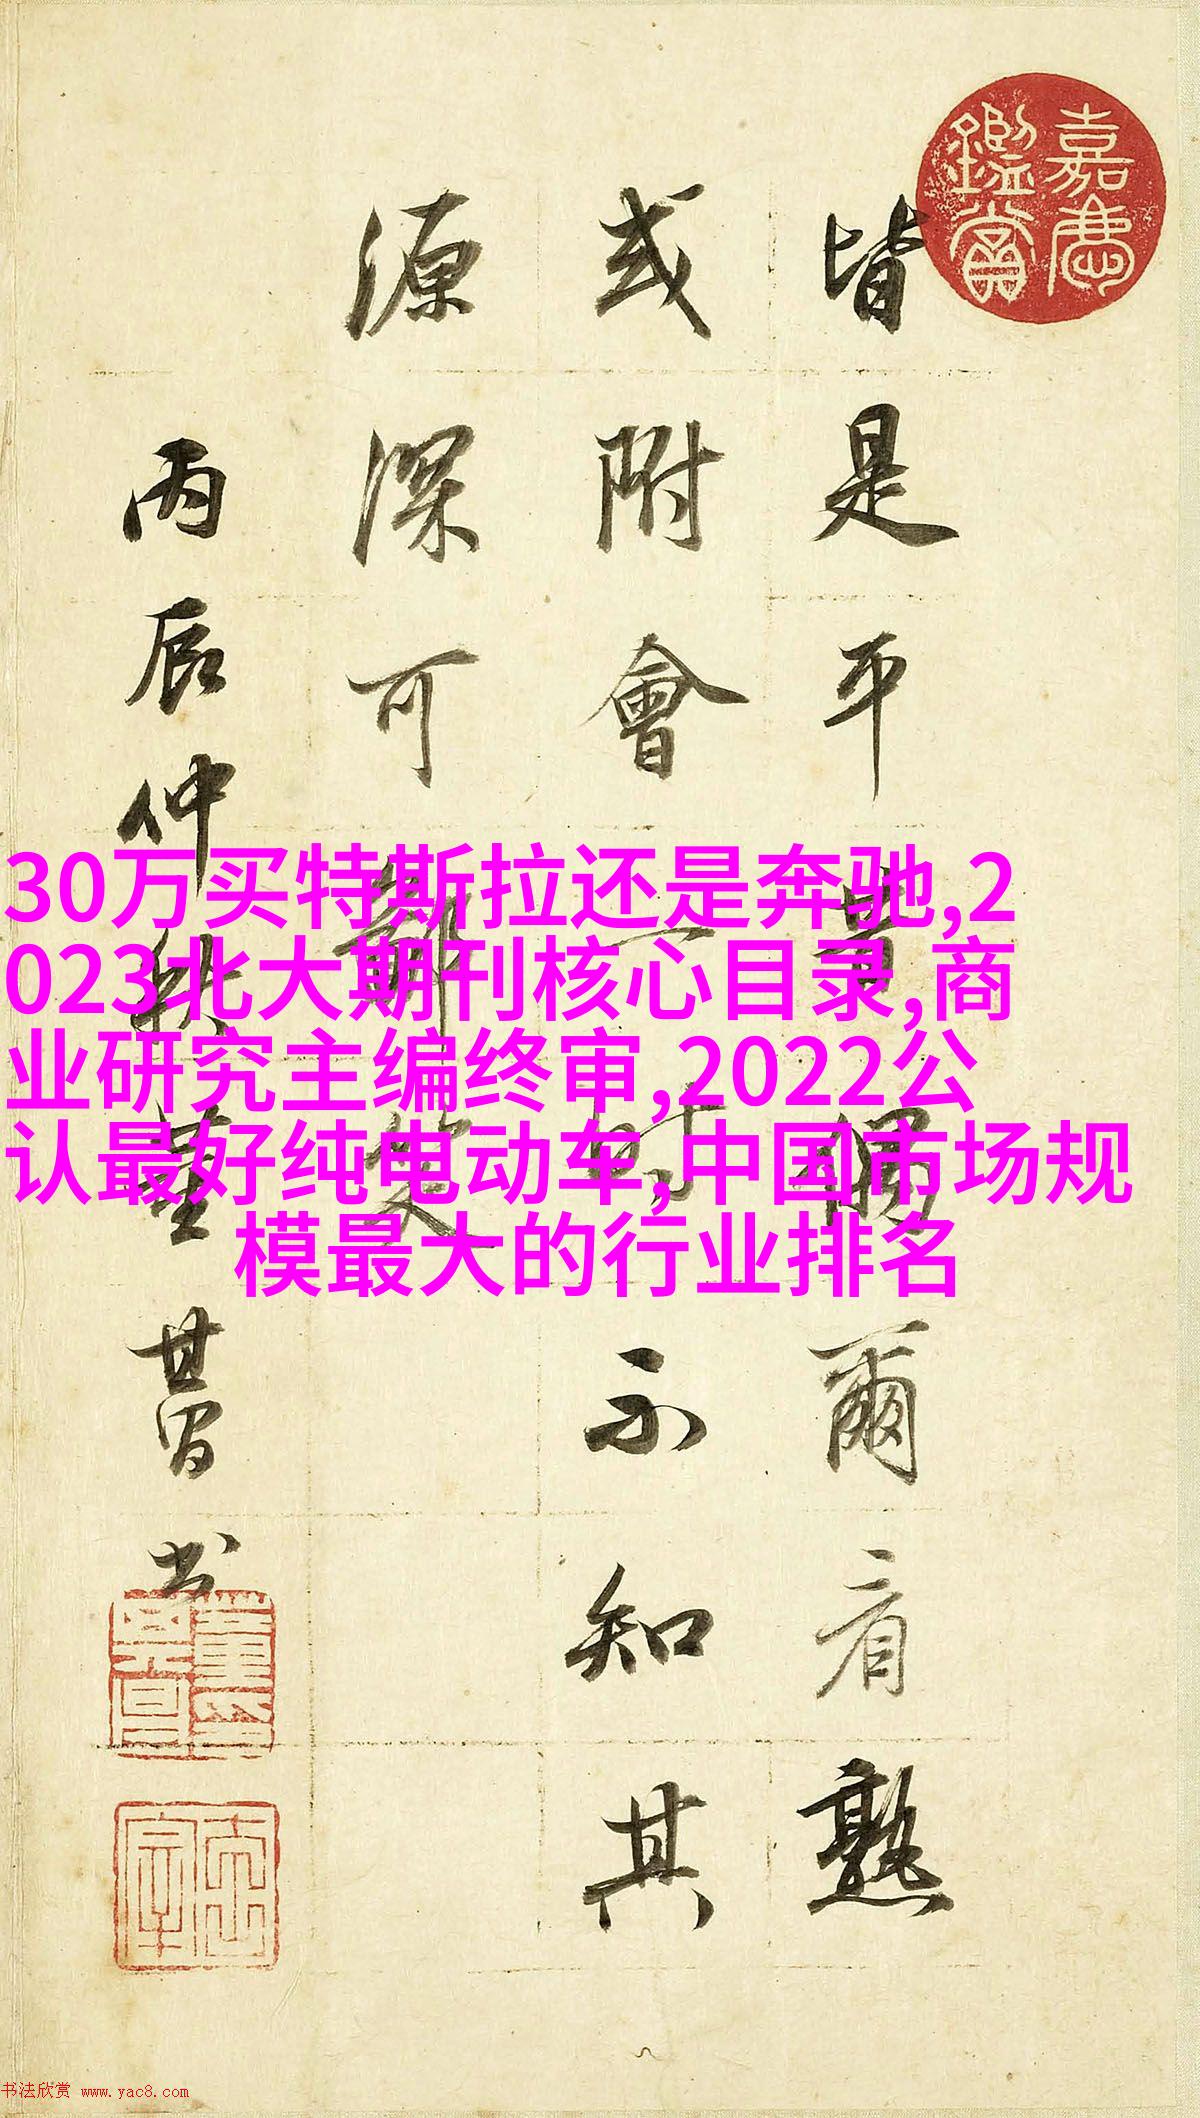 嘉慶
鑑賞
皆是平黃個爾看熟
或附會一時不知其
源深可鄙笑
丙辰仲秋董其昌書
30万买特斯拉还是奔驰,2
023北大期刊核心目录,商
业研究主编终审,2022公
认最好纯电动车,中国市场规
模最大的行业排名
书法欣赏 www.yac8.com